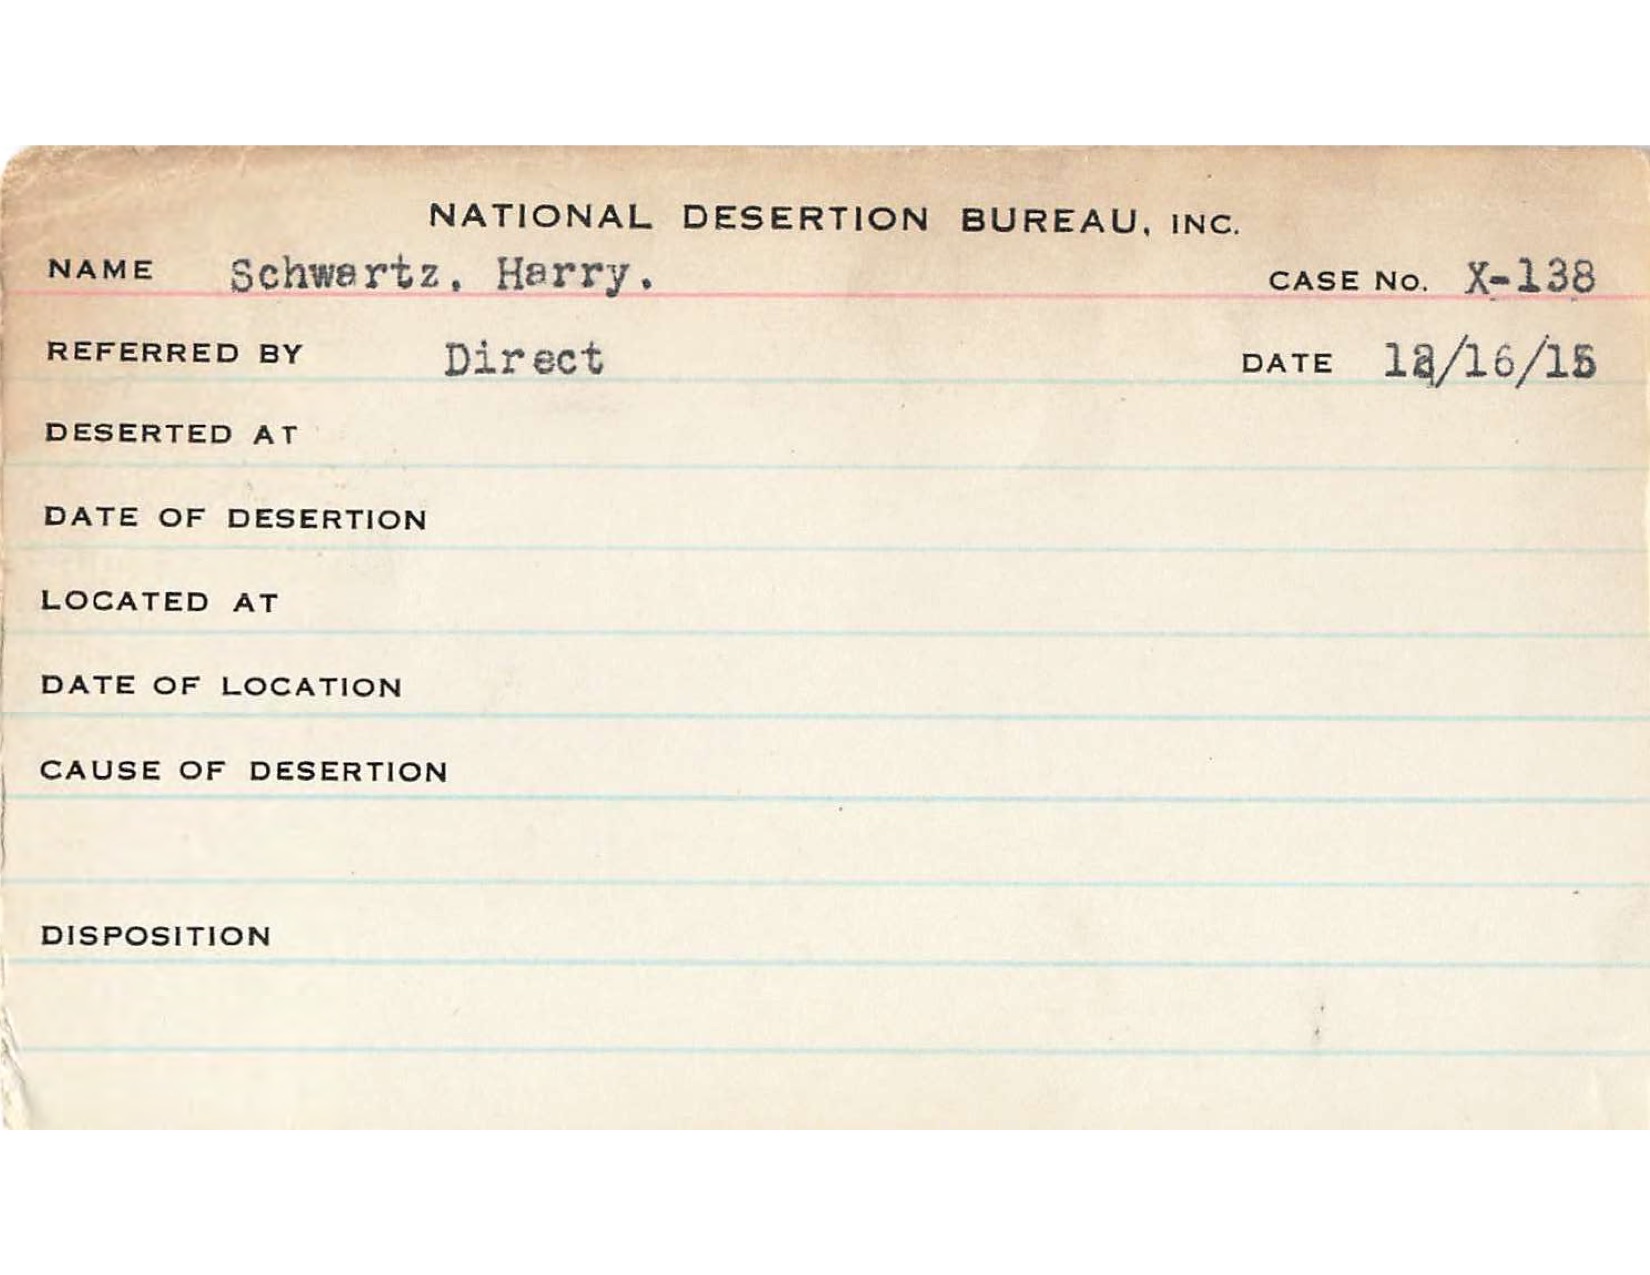 NATIONAL DESERTION BUREAU, INC.
NAME Schwartz, Harry. CASE No. X-138
REFERRED BY Direct DATE 12/16/15
DESERTED AT
DATE OF DESERTION
LOCATED AT
DATE OF LOCATION
CAUSE OF DESERTION
DISPOSITION